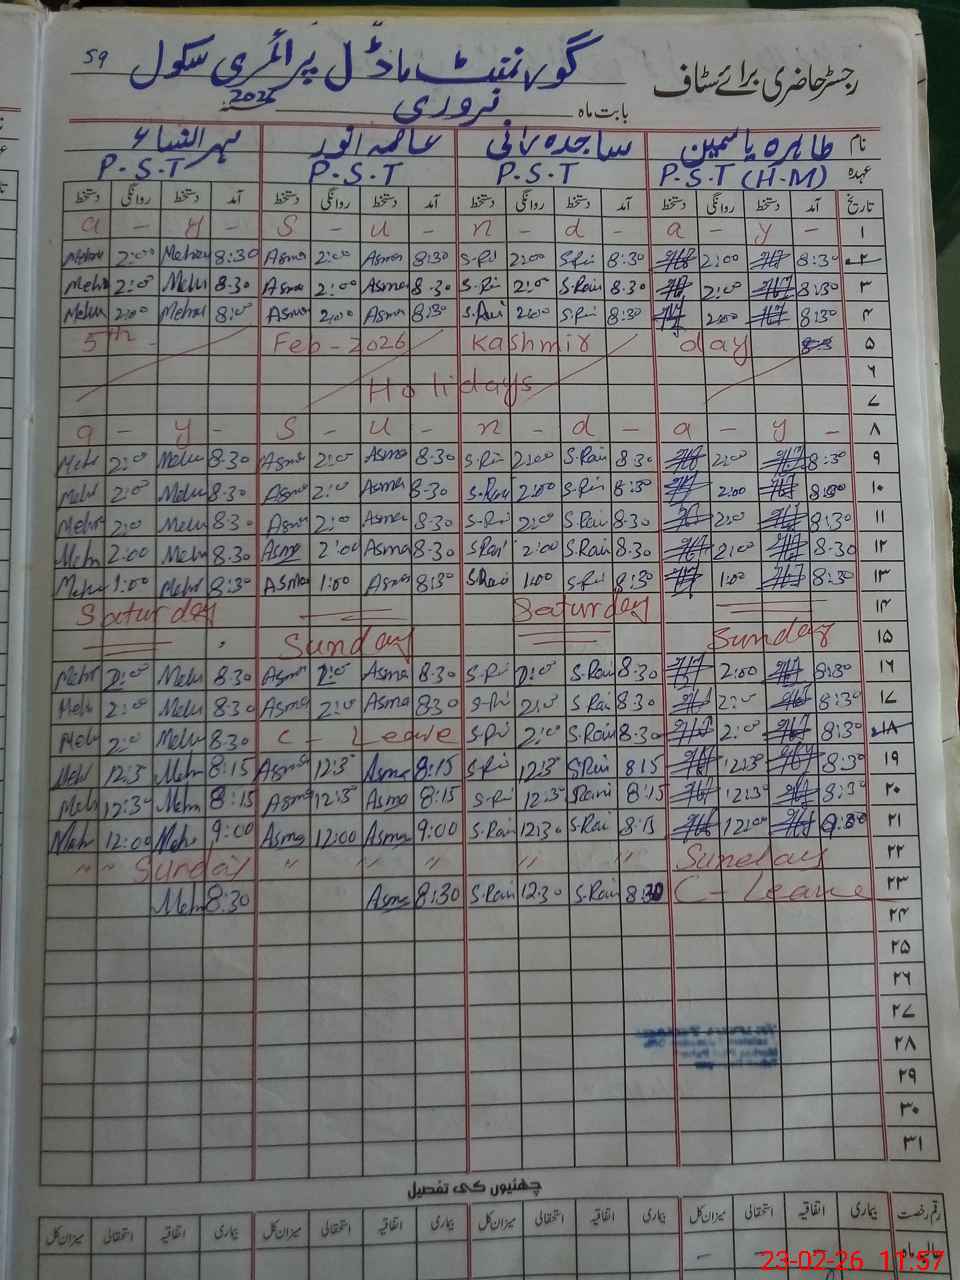 59
گورنمنٹ ماڈل پرائمری سکول
رجسٹر حاضری برائے سٹاف
بابت ماہ فروری 2026
نام طاہرہ یاسمین ساجدہ رانی عاصمہ انور مہر النساء
عہدہ P.S.T (H-M) P.S.T P.S.T P.S.T
تاریخ آمد دستخط روانگی دستخط آمد دستخط روانگی دستخط آمد دستخط روانگی دستخط آمد دستخط روانگی دستخط
a - y - S - u - n - d - a - y - ۱
Mehr 2:00 Mehr 8:30 Asma 2:00 Asma 8:30 S.Rani 2:00 S.Rani 8:30 2:00 8:30 ۲
Mehr 2:00 Mehr 8.30 Asma 2:00 Asma 8.30 S.Rani 2:00 S.Rani 8.30 2:00 8:30 ۳
Mehr 2:00 Mehr Asma 2:00 Asma 8:30 S.Rani 2:00 S.Rani 8:30 2:00 8:30 ۴
5th Feb-2026 Kashmir day ۵
۶
Holidays ۷
a - y - S - u - n - d - a - y - ۸
Mehr 2:00 Mehr 8.30 Asma 2:00 Asma 8.30 S.Rani 2:00 S.Rani 8.30 2:00 8:30 ۹
Mehr 2:00 Mehr 8.30 Asma 2:00 Asma 8.30 S.Rani 2:00 S.Rani 8:30 2:00 8:30 ۱۰
Mehr 2:00 Mehr 8.30 Asma 2:00 Asma 8.30 S.Rani 2:00 S.Rani 8.30 2:00 8:30 ۱۱
Mehr 2:00 Mehr 8.30 Asma 2:00 Asma 8.30 S.Rani 2:00 S.Rani 8.30 2:00 8.30 ۱۲
Mehr 1:00 Mehr 8:30 Asma 1:00 Asma 8:30 S.Rani 1:00 S.Rani 8:30 1:00 8:30 ۱۳
Saturday Saturday ۱۴
Sunday Sunday ۱۵
Mehr 2:00 Mehr 8.30 Asma 2:00 Asma 8.30 S.Rani 2:00 S.Rani 8.30 2:00 8:30 ۱۶
Mehr 2:00 Mehr 8.30 Asma 2:00 Asma 8.30 S.Rani 2:00 S.Rani 8.30 2:00 8:30 ۱۷
Mehr 2:00 Mehr 8.30 C - Leave S.Rani 2:00 S.Rani 8.30 2:00 8:30 ۱۸
Mehr 12:30 Mehr 8:15 Asma 12:30 Asma 8:15 S.Rani 12:30 S.Rani 8:15 12:30 8:30 ۱۹
Mehr 12:30 Mehr 8:15 Asma 12:30 Asma 8:15 S.Rani 12:30 S.Rani 8:15 12:30 8:30 ۲۰
Mehr 12:00 Mehr 9:00 Asma 12:00 Asma 9:00 S.Rani 12:30 S.Rani 8:15 12:00 ۲۱
" " Sunday " " " " " Sunday ۲۲
Mehr 8:30 Asma 8:30 S.Rani 12:30 S.Rani 8:30 C - Leave ۲۳
۲۴
۲۵
۲۶
۲۷
۲۸
۲۹
۳۰
۳۱
چھٹیوں کی تفصیل
رقم رخصت بیماری اتفاقیہ استحقاقی میزان کل بیماری اتفاقیہ استحقاقی میزان کل بیماری اتفاقیہ استحقاقی میزان کل بیماری اتفاقیہ استحقاقی میزان کل
23-02-26 11:57